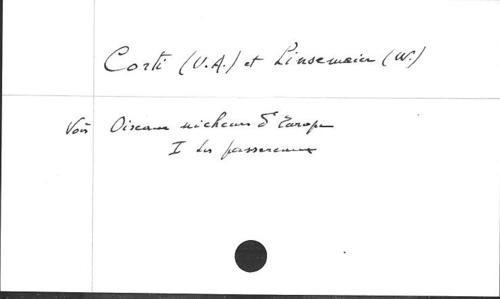 Corti (U.A.) et Linsemaier (W.)
Voir Oiseaux nicheurs d'Europe
I Les passereaux